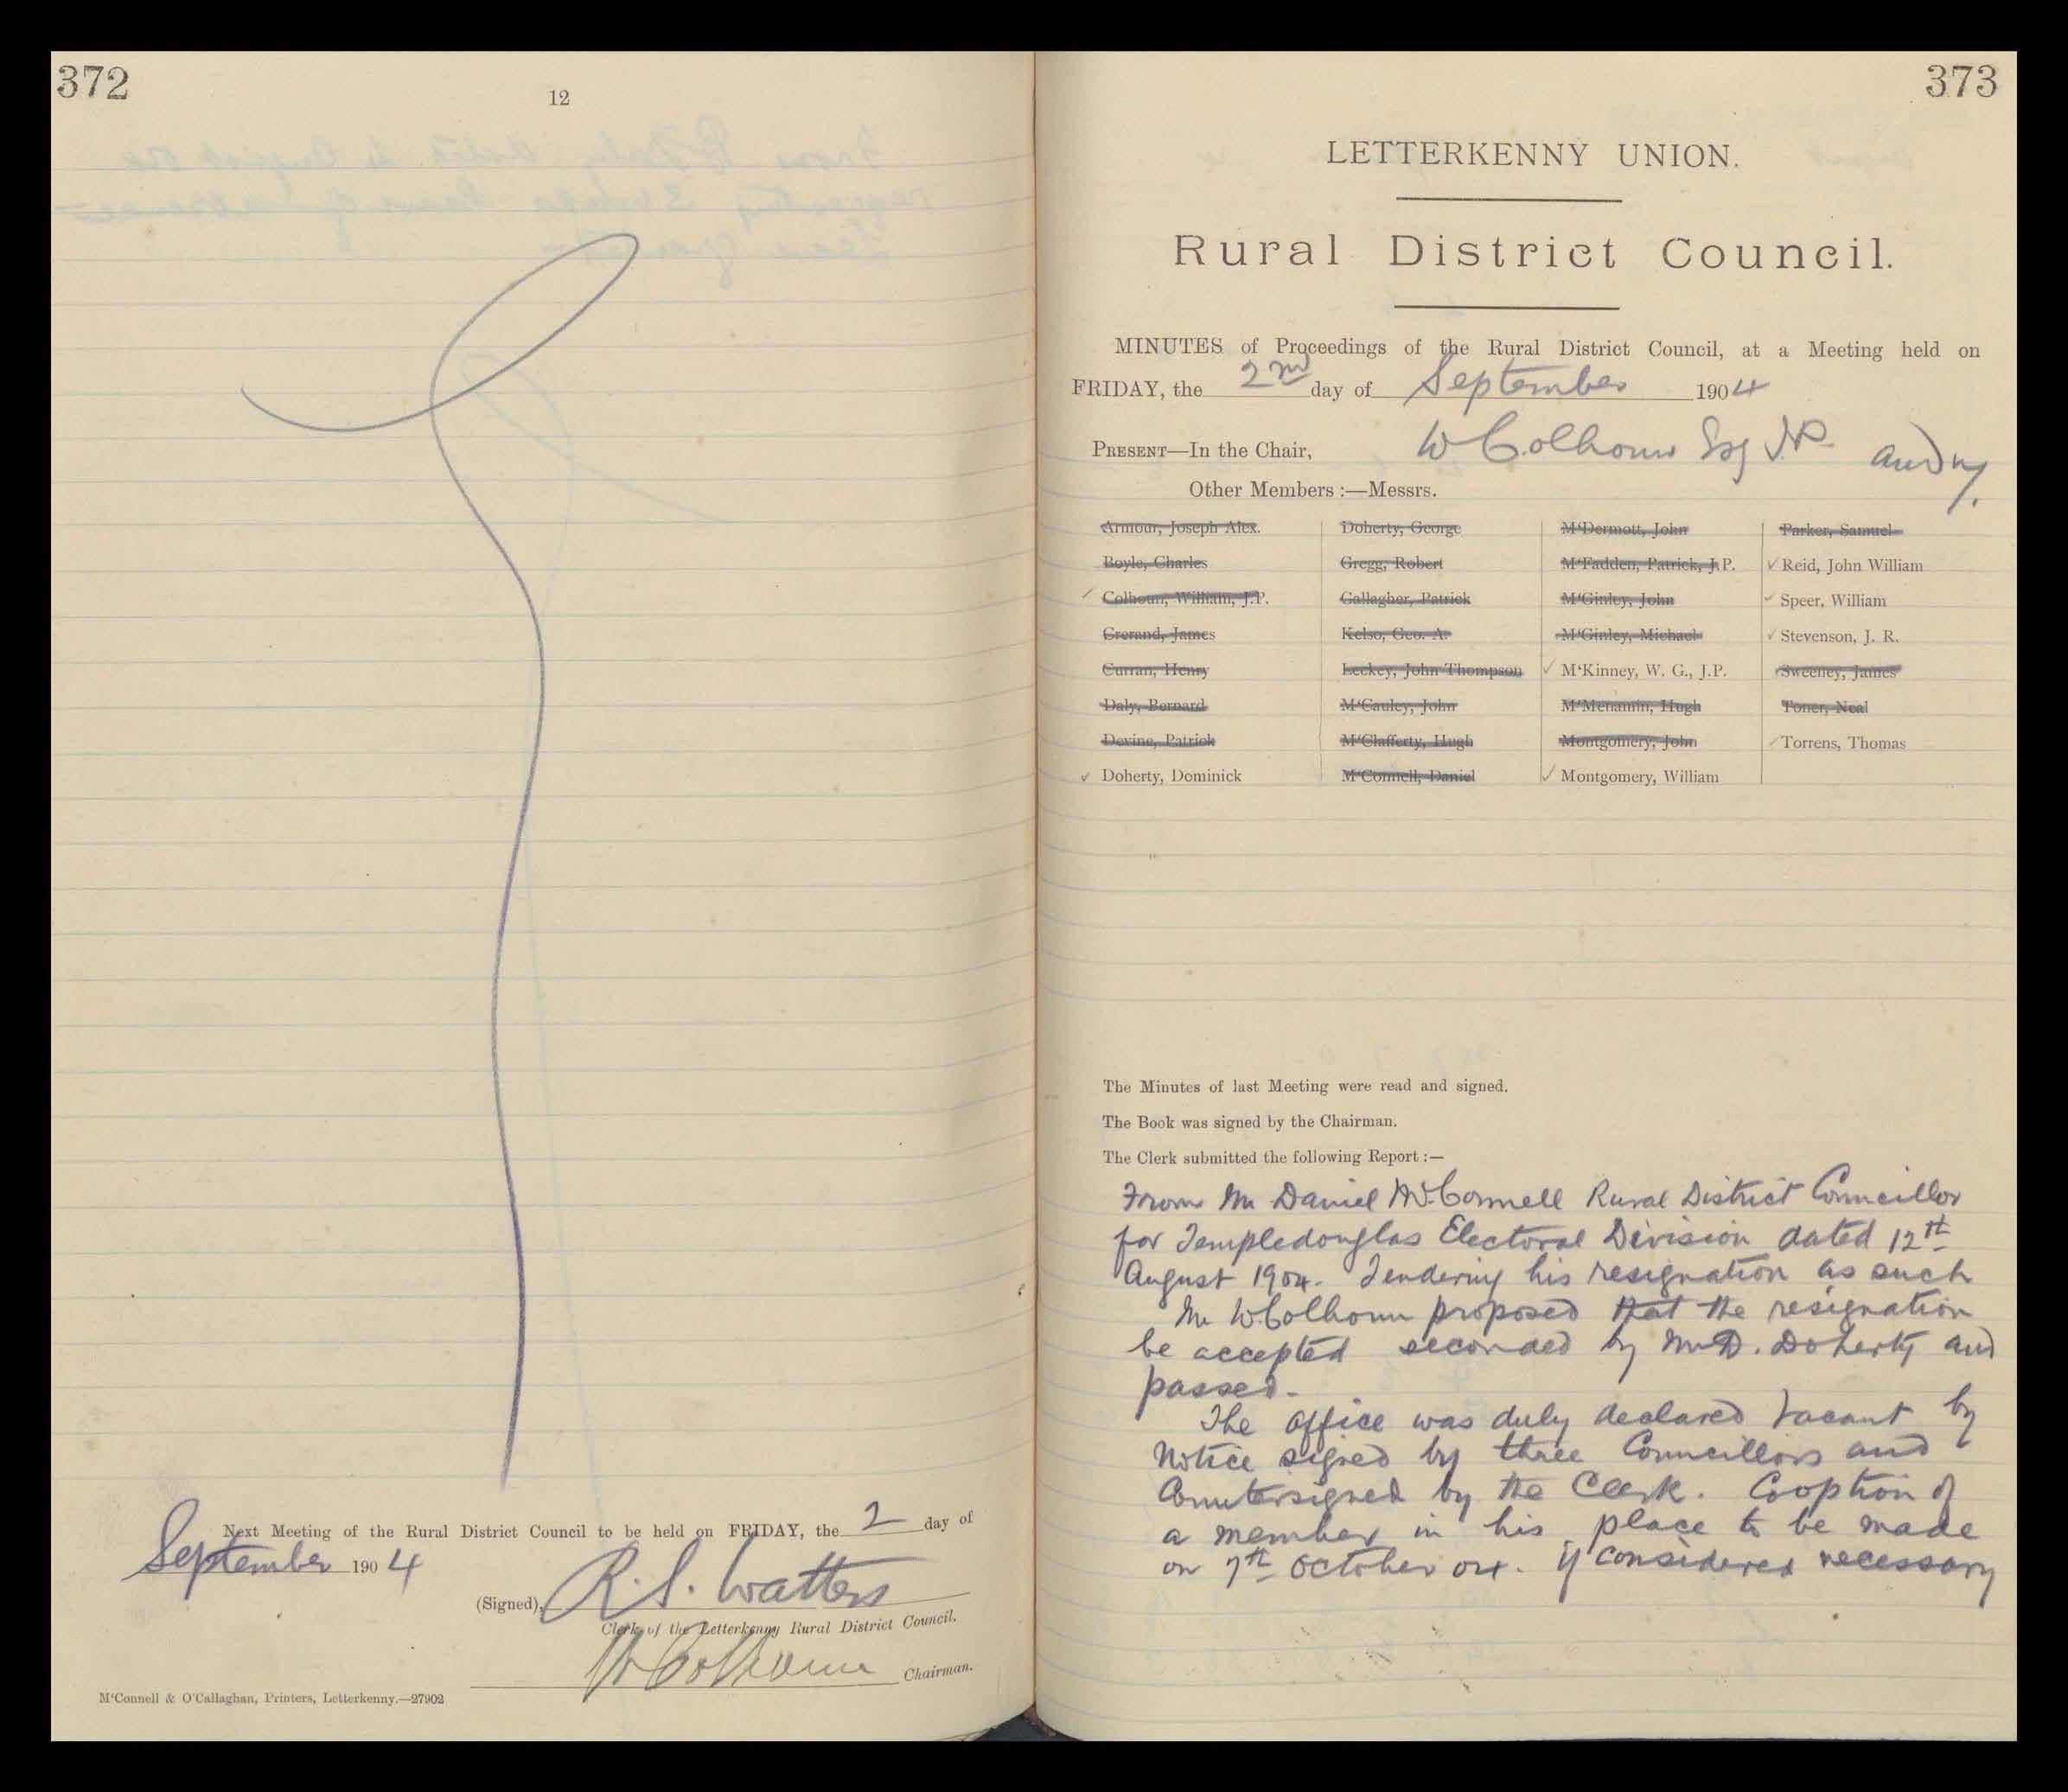 372
12
Next Meeting of the Rural District Council to be held on FRIDAY, the 2 day of
September 1904
(Signed), R. S. Watters
Clerk of the Letterkenny Rural District Council.
W Colhoun Chairman.
M‘Connell & O'Callaghan, Printers, Letterkenny.—27902
373
LETTERKENNY UNION.
Rural District Council.
MINUTES of Proceedings of the Rural District Council, at a Meeting held on
FRIDAY, the 2nd day of September 1904
PRESENT—In the Chair, W Colhoun Esq J.P.
Other Members :—Messrs.
Armour, Joseph Alex. Doherty, George M‘Dermott, John Parker, Samuel
Boyle, Charles Gregg, Robert M‘Fadden, Patrick, J.P. ✓ Reid, John William
✓ Colhoun, William, J.P. Gallagher, Patrick M‘Ginley, John ✓ Speer, William
Crerand, James Kelso, Geo. A. M‘Ginley, Michael ✓ Stevenson, J. R.
Curran, Henry Leckey, John Thompson ✓ M‘Kinney, W. G., J.P. Sweeney, James
Daly, Bernard M‘Cauley, John M‘Menamin, Hugh Toner, Neal
Devine, Patrick M‘Clafferty, Hugh Montgomery, John ✓ Torrens, Thomas
✓ Doherty, Dominick M‘Connell, Daniel ✓ Montgomery, William
The Minutes of last Meeting were read and signed.
The Book was signed by the Chairman.
The Clerk submitted the following Report :—
From Mr Daniel McConnell Rural District Councillor
for Templedouglas Electoral Division dated 12th
August 1904. Tendering his resignation as such
Mr W. Colhoun proposed that the resignation
be accepted seconded by Mr D. Doherty and
passed.
The office was duly declared vacant by
Notice signed by three Councillors and
Countersigned by the Clerk. Cooption of
a member in his place to be made
on 7th October 04. if considered necessary